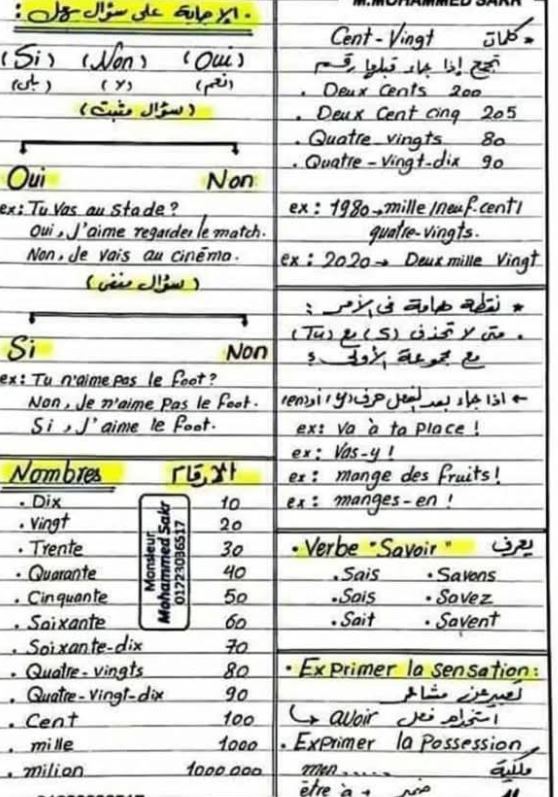 • الإجابة على سؤال بـ هل :
(Si) (Non) (Oui)
(بلى) (لا) (نعم)
( سؤال مثبت )
Oui Non
ex: Tu vas au stade?
Oui, J'aime regarder le match.
Non, Je vais au cinéma.
( سؤال منفى )
Si Non
ex: Tu n'aime pas le foot?
Non, Je n'aime pas le foot.
Si, J'aime le foot.
Nombres الأرقام
• Dix 10
• Vingt 20
• Trente 30
• Quarante 40
• Cinquante 50
• Soixante 60
• Soixante-dix 70
• Quatre-vingts 80
• Quatre-vingt-dix 90
• Cent 100
• mille 1000
• milion 1000.000
Monsieur
Mohammed Sakr
01223036517
M.MOHAMMED SAKR
* كلمات Cent-Vingt
تجمع إذا جاء قبلها رقم
• Deux Cents 200
• Deux Cent cinq 205
• Quatre vingts 80
• Quatre-Vingt-dix 90
ex: 1980→mille/neuf-cent/
quatre-vingts.
ex: 2020→ Deux mille Vingt
* نقطة هامة فى الأمر :
• متى لا تحذف (S) مع (Tu)
مع مجموعة الأولى ؟
← اذا جاء بعد الفعل حرف (y) أو (en)
ex: Va à ta place !
ex: Vas-y !
ex: mange des fruits!
ex: manges-en !
• Verbe "Savoir" يعرف
•Sais •Savons
•Sais •Savez
•Sait •Savent
• Exprimer la sensation:
تعبير عن مشاعر
↳ avoir استخدام فعل
• Exprimer la Possession
ملكية
être à + ضمير